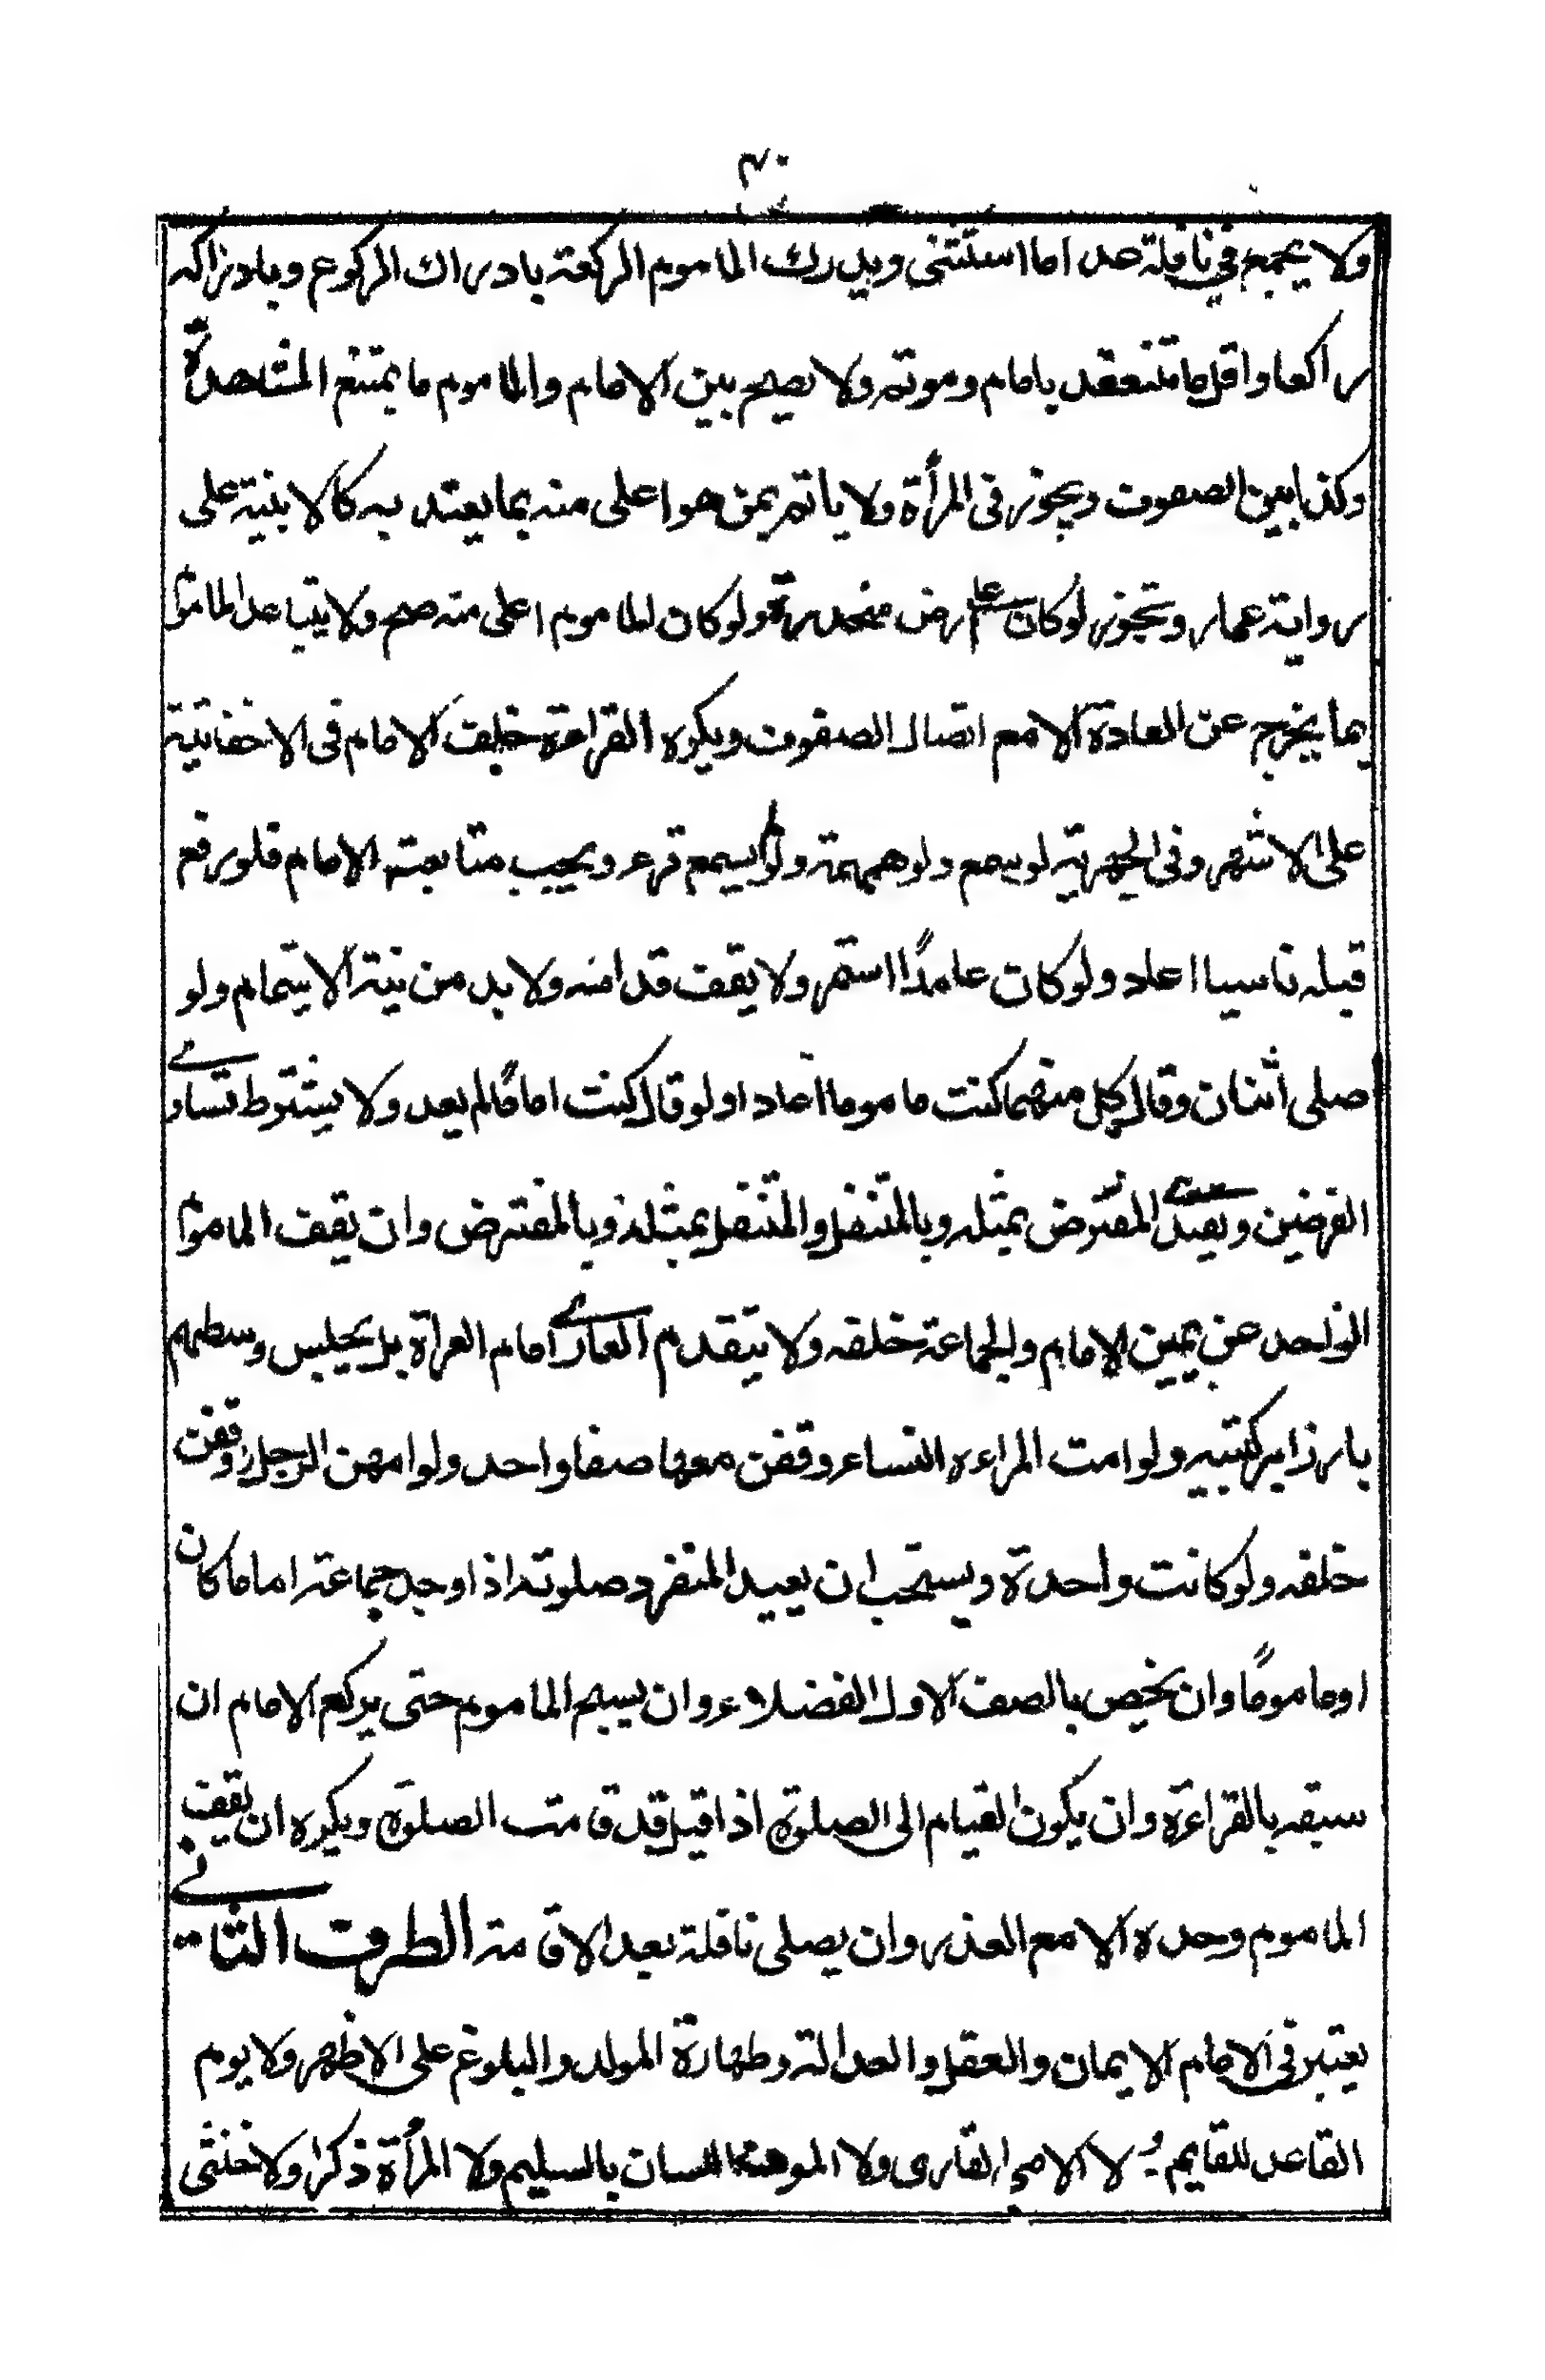 ۴۰
ولا يجمع في نافلة عدا ما استثنى ويدرك الماموم الركعة بادراك الركوع وبادراكه
راكعا واقل ما تنعقد بامام وموتم ولا يصح بين الامام والماموم ما يمتنع المشاهدة
وكذا بين الصفوف ويجوز فى المرأة ولا ياتم بمن هو اعلى منه بما يعتد به كالابنية على
رواية عمار وتجوز لو كان على ارض منحدرة ولو كان الماموم اعلى منه صح ولا يتباعد الماموم
بما يخرج عن العادة الا مع اتصال الصفوف ويكره القراءة خلف الامام فى الاخفاتية
على الاشهر وفى الجهرية لو سمع ولو همهمة ولو لم يسمع قرء ويجب متابعة الامام فلو رفع
قبله ناسيا اعاد ولو كان عامدًا استمر ولا يقف قدامه ولا بد من نية الايتمام ولو
صلى اثنان وقال كل منهما كنت ماموما اعاد او لو قال كنت امامًا لم يعد ولا يشترط تساوى
الفرضين ويقتدى المفترض بمثله وبالمتنفل والمتنفل بمثله وبالمفترض وان يقف الماموم
الواحد عن يمين الامام والجماعة خلفه ولا يتقدم العارى امام العراة بل يجلس وسطهم
بارزا بركبتيه ولو امت المراءه النساء وقفن معها صفا واحد ولو امهن الرجل وقفن
خلفه ولو كانت واحدة ويستحب ان يعيد المنفرد صلوته اذا وجد جماعة اماما كان
او مامومًا وان يخص بالصف الاول الفضلاء وان يسبح الماموم حتى يركع الامام ان
سبقه بالقراءة وان يكون القيام الى الصلوة اذا قيل قد قامت الصلوة ويكره ان يقف
الماموم وحده الا مع العذر وان يصلى نافلة بعد الاقامة الطرف الثانى
يعتبر فى الامام الايمان والعقل والعدالة وطهارة المولد والبلوغ على الاظهر ولا يوم
القاعد للقايم ولا الامى القارى ولا الموف اللسان بالسليم ولا المرأة ذكرًا ولا خنثى